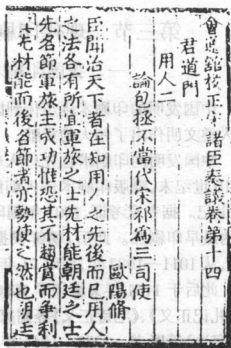 會通館校正宋諸臣奏議卷第十四
君道門
用人二
論包拯不當代宋祁為三司使
歐陽脩
臣聞治天下者在知用人之先後而已用人
之法各有所宜軍旅之士先材能朝廷之士
先名節軍旅主成功惟恐其不趨賞而爭利
其先材能而後名節者亦勢使之然也朝廷主